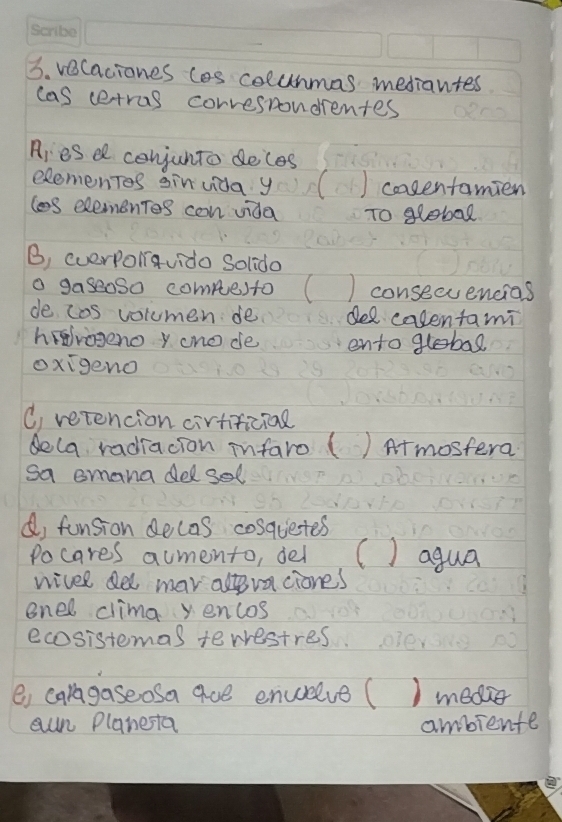 Scribe
3. relaciones los colunmas mediantes
las letras correspondientes
A, es el conjunto de los
elementos sin vida y ( ) calentamien
los elementos con vida to global.
B, cuerpo liquido solido
o gaseoso compuesto ( ) consecuencias
de los volumen de del calentami
hidrogeno y uno de ento global
oxigeno
C, retencion cirtificial
de la radiacion infaro ( ) Atmosfera
sa emana del sol
d, funsion de las casquetes
polares aumento, del ( ) agua
nivel del mar alteraciones
en el clima y en los
ecosistemas terrestres.
e, capa gaseosa que envuelve ( ) medio
a un planeta ambiente